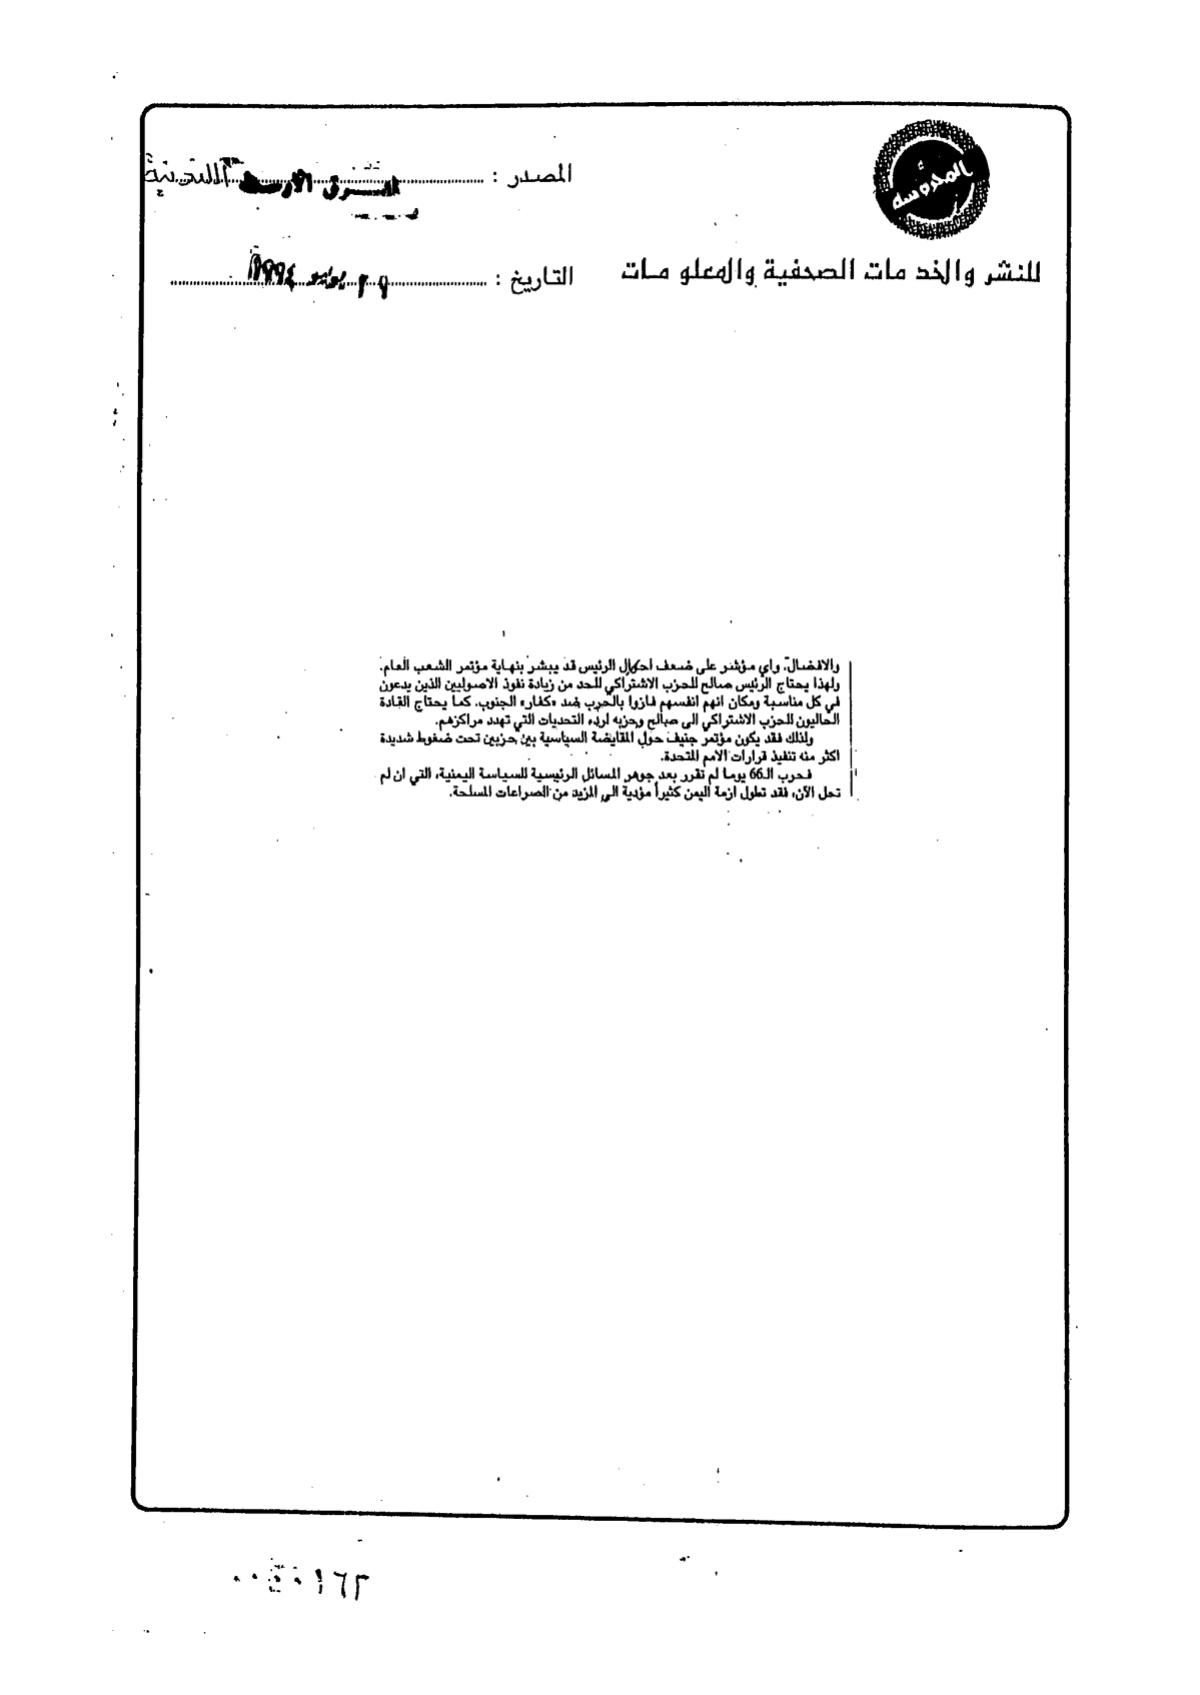 المحروسة
المصدر : الشرق الأوسط اللندنية
للنشر والخدمات الصحفية والمعلومات
التاريخ : ٢٩ يوليو ١٩٩٤
والافضال، واي مؤشر على ضعف احوال الرئيس قد يبشر بنهاية مؤتمر الشعب العام.
ولهذا يحتاج الرئيس صالح للحزب الاشتراكي للحد من زيادة نفوذ الاصوليين الذين يدعون
في كل مناسبة ومكان انهم انفسهم فازوا بالحرب ضد «كفار» الجنوب. كما يحتاج القادة
الحاليون للحزب الاشتراكي الى صالح وحزبه لردء التحديات التي تهدد مراكزهم.
ولذلك فقد يكون مؤتمر جنيف حول المقايضة السياسية بين حزبين تحت ضغوط شديدة
اكثر منه تنفيذ قرارات الامم المتحدة.
فحرب الـ66 يوما لم تقرر بعد جوهر المسائل الرئيسية للسياسة اليمنية، التي ان لم
تحل الآن، فقد تطول ازمة اليمن كثيراً مؤدية الى المزيد من الصراعات المسلحة.